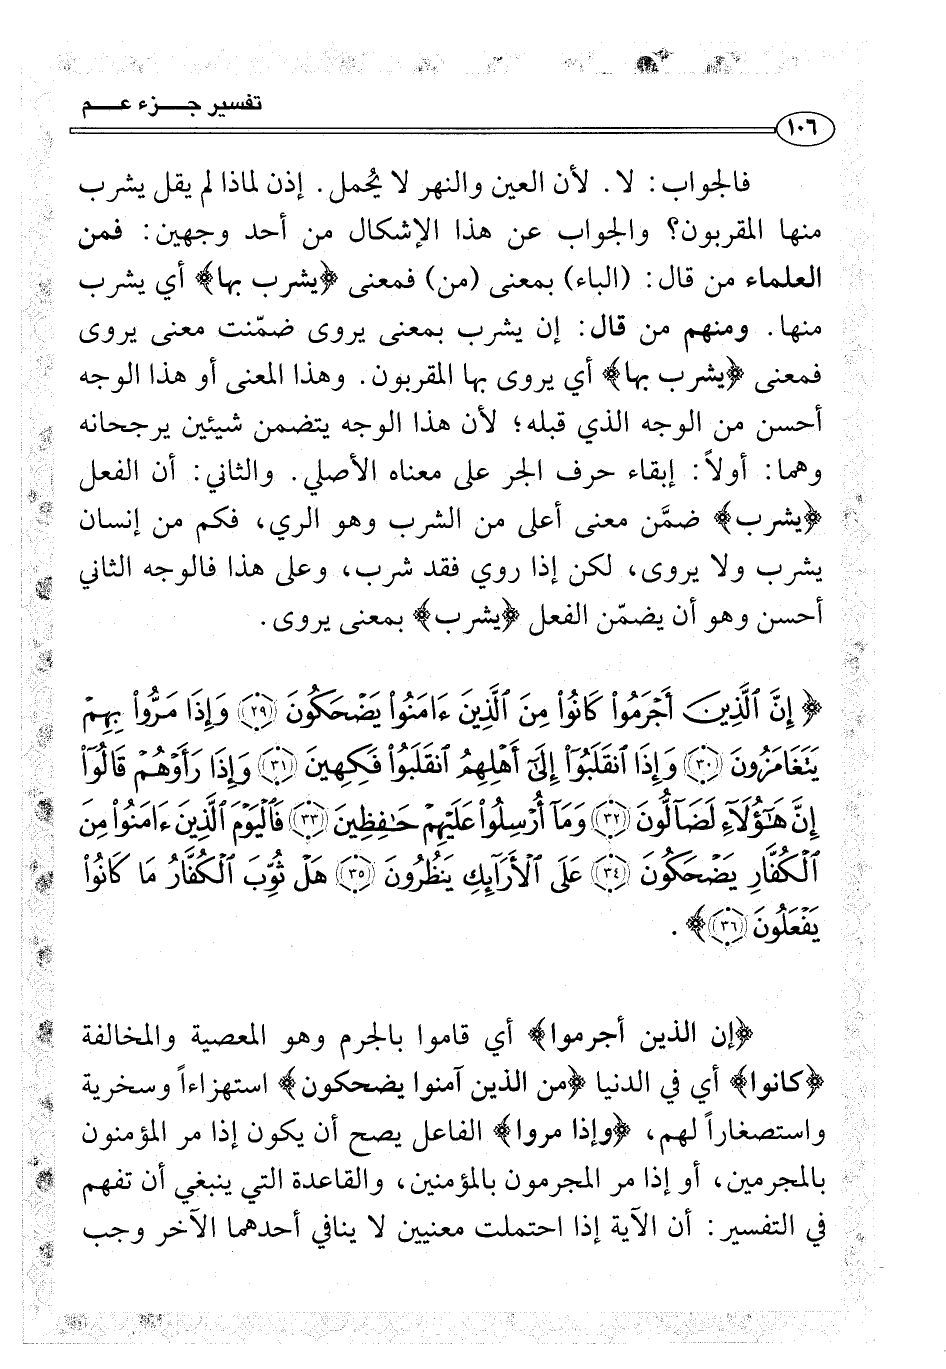 تفسير جـــزء عـــم
١٠٦
فالجواب: لا. لأن العين والنهر لا يُحمل. إذن لماذا لم يقل يشرب
منها المقربون؟ والجواب عن هذا الإشكال من أحد وجهين: فمن
العلماء من قال: (الباء) بمعنى (من) فمعنى ﴿يشرب بها﴾ أي يشرب
منها. ومنهم من قال: إن يشرب بمعنى يروى ضمّنت معنى يروى
فمعنى ﴿يشرب بها﴾ أي يروى بها المقربون. وهذا المعنى أو هذا الوجه
أحسن من الوجه الذي قبله؛ لأن هذا الوجه يتضمن شيئين يرجحانه
وهما: أولاً: إبقاء حرف الجر على معناه الأصلي. والثاني: أن الفعل
﴿يشرب﴾ ضمَّن معنى أعلى من الشرب وهو الري، فكم من إنسان
يشرب ولا يروى، لكن إذا روي فقد شرب، وعلى هذا فالوجه الثاني
أحسن وهو أن يضمّن الفعل ﴿يشرب﴾ بمعنى يروى.
﴿إِنَّ ٱلَّذِينَ أَجْرَمُوا۟ كَانُوا۟ مِنَ ٱلَّذِينَ ءَامَنُوا۟ يَضْحَكُونَ ﴿٢٩﴾ وَإِذَا مَرُّوا۟ بِهِمْ
يَتَغَامَزُونَ ﴿٣٠﴾ وَإِذَا ٱنقَلَبُوٓا۟ إِلَىٰٓ أَهْلِهِمُ ٱنقَلَبُوا۟ فَكِهِينَ ﴿٣١﴾ وَإِذَا رَأَوْهُمْ قَالُوٓا۟
إِنَّ هَٰٓؤُلَآءِ لَضَآلُّونَ ﴿٣٢﴾ وَمَآ أُرْسِلُوا۟ عَلَيْهِمْ حَٰفِظِينَ ﴿٣٣﴾ فَٱلْيَوْمَ ٱلَّذِينَ ءَامَنُوا۟ مِنَ
ٱلْكُفَّارِ يَضْحَكُونَ ﴿٣٤﴾ عَلَى ٱلْأَرَآئِكِ يَنظُرُونَ ﴿٣٥﴾ هَلْ ثُوِّبَ ٱلْكُفَّارُ مَا كَانُوا۟
يَفْعَلُونَ ﴿٣٦﴾﴾.
﴿إن الذين أجرموا﴾ أي قاموا بالجرم وهو المعصية والمخالفة
﴿كانوا﴾ أي في الدنيا ﴿من الذين آمنوا يضحكون﴾ استهزاءاً وسخرية
واستصغاراً لهم، ﴿وإذا مروا﴾ الفاعل يصح أن يكون إذا مر المؤمنون
بالمجرمين، أو إذا مر المجرمون بالمؤمنين، والقاعدة التي ينبغي أن تفهم
في التفسير: أن الآية إذا احتملت معنيين لا ينافي أحدهما الآخر وجب